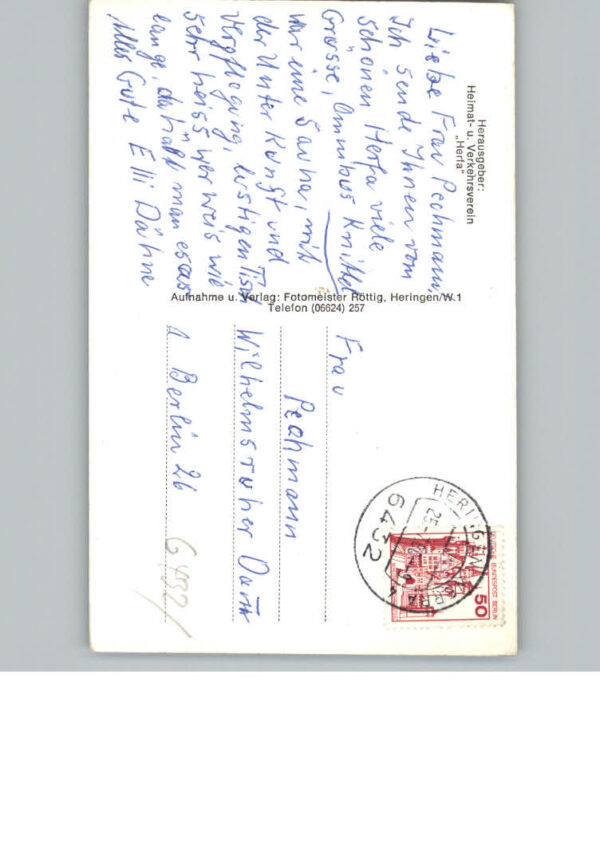 Herausgeber:
Heimat- u. Verkehrsverein
„Herfa“
Liebe Frau Pechmann,
Ich sende Ihnen vom
schönen Herfa viele
Grösse, Omnibus Knittel
war eine Sauna, mit
der Unterkunft und
Vergflegung, lustigen Tisch
sehr heiss wer weis wie
lange, da hält man es aus
Alles Gute Elli Dähne
Aufnahme u. Verlag: Fotomeister Röttig, Heringen/W.1
Telefon (06624) 257
Frau
Pechmann
Wilhelmsruher Damm
1 Berlin 26
DEUTSCHE BUNDESPOST BERLIN
50
HERINGEN
6432